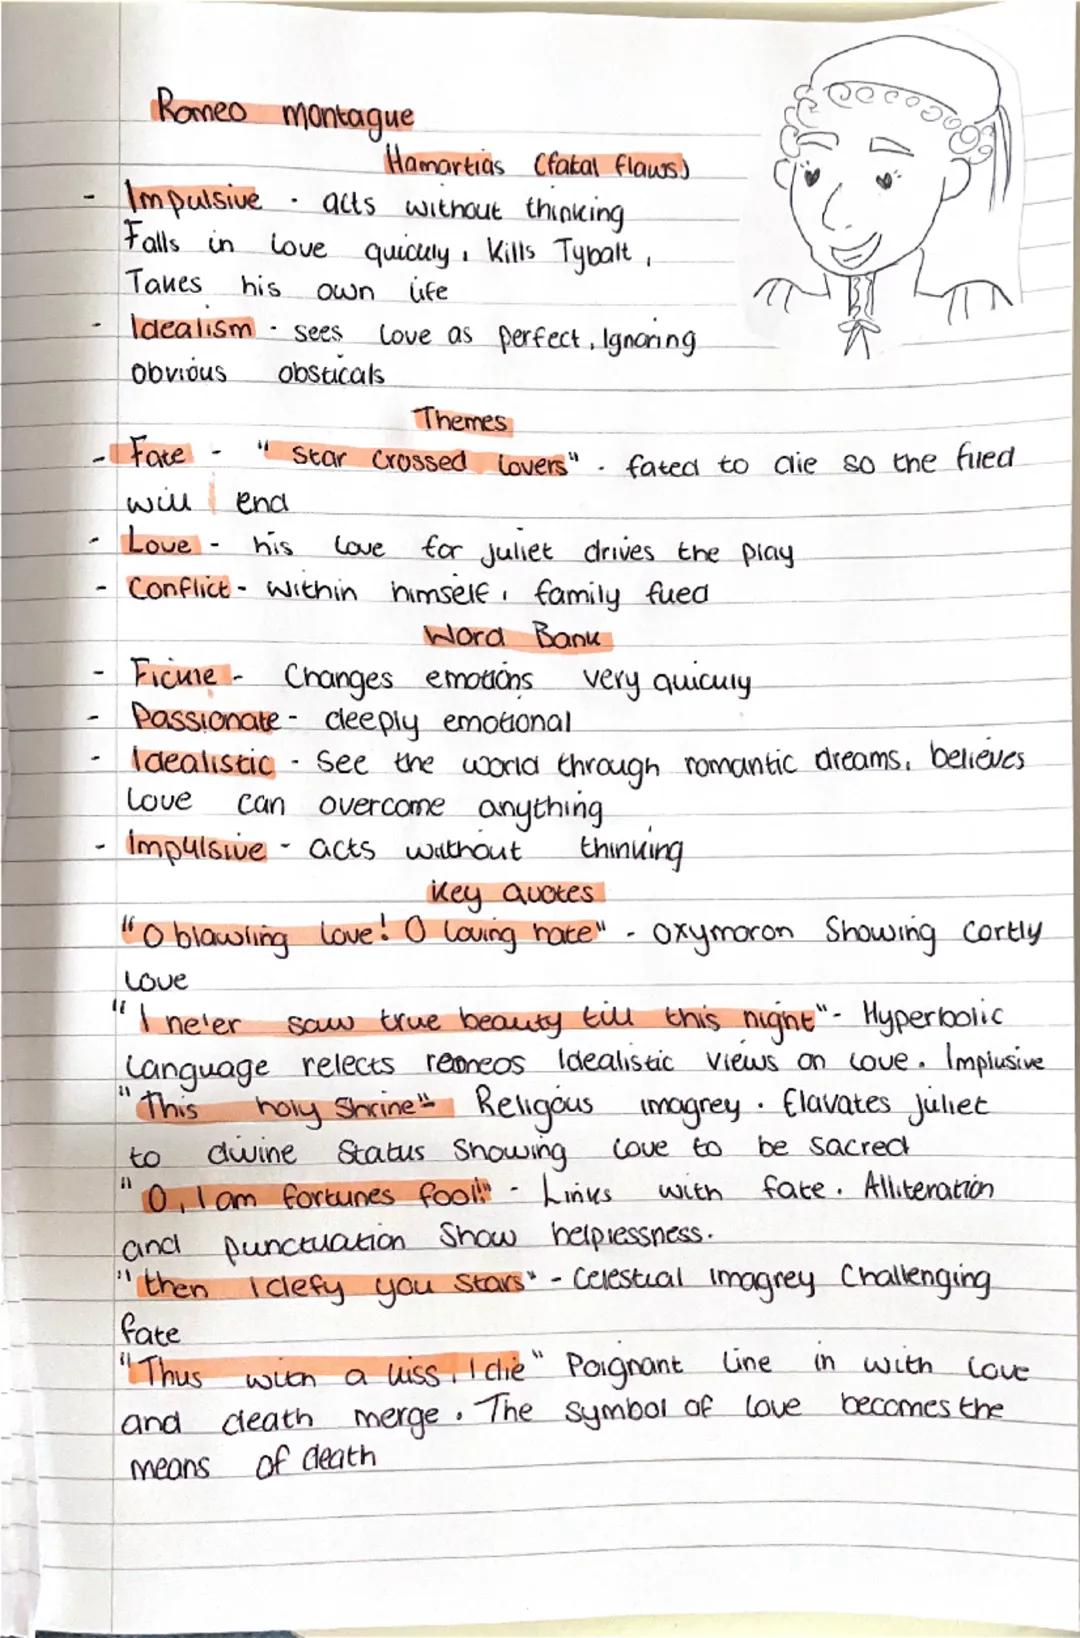 Romeo montague
Hamartias (fatal flaws)
- Impulsive - acts without thinking
Falls in love quickly, kills Tybalt,
Takes his own life
- Idealism - sees love as perfect, Ignoring
obvious obsticals
Themes
- Fate - "star crossed lovers" - fated to die so the fued
will end
- Love - his love for juliet drives the play
- Conflict - within himself, family fued
Word Bank
- Fickle - Changes emotions very quickly
- Passionate - deeply emotional
- Idealistic - See the world through romantic dreams, believes
love can overcome anything
- Impulsive - acts without thinking
Key Quotes
"O blawling love! O loving hate" - oxymoron Showing Cortly
love
"I ne'er saw true beauty till this night" - Hyperbolic
language relects romeos Idealistic views on love. Implusive
"This holy Shrine" - Religous imagrey. Elavates juliet
to divine Status Showing love to be sacred
"O, I am fortunes fool!" - Links with fate. Alliteration
and punctuation Show helplessness.
"then I defy you Stars" - Celestial imagrey Challenging
fate
"Thus with a kiss, I die" Poignant line in with love
and death merge. The symbol of love becomes the
means of death